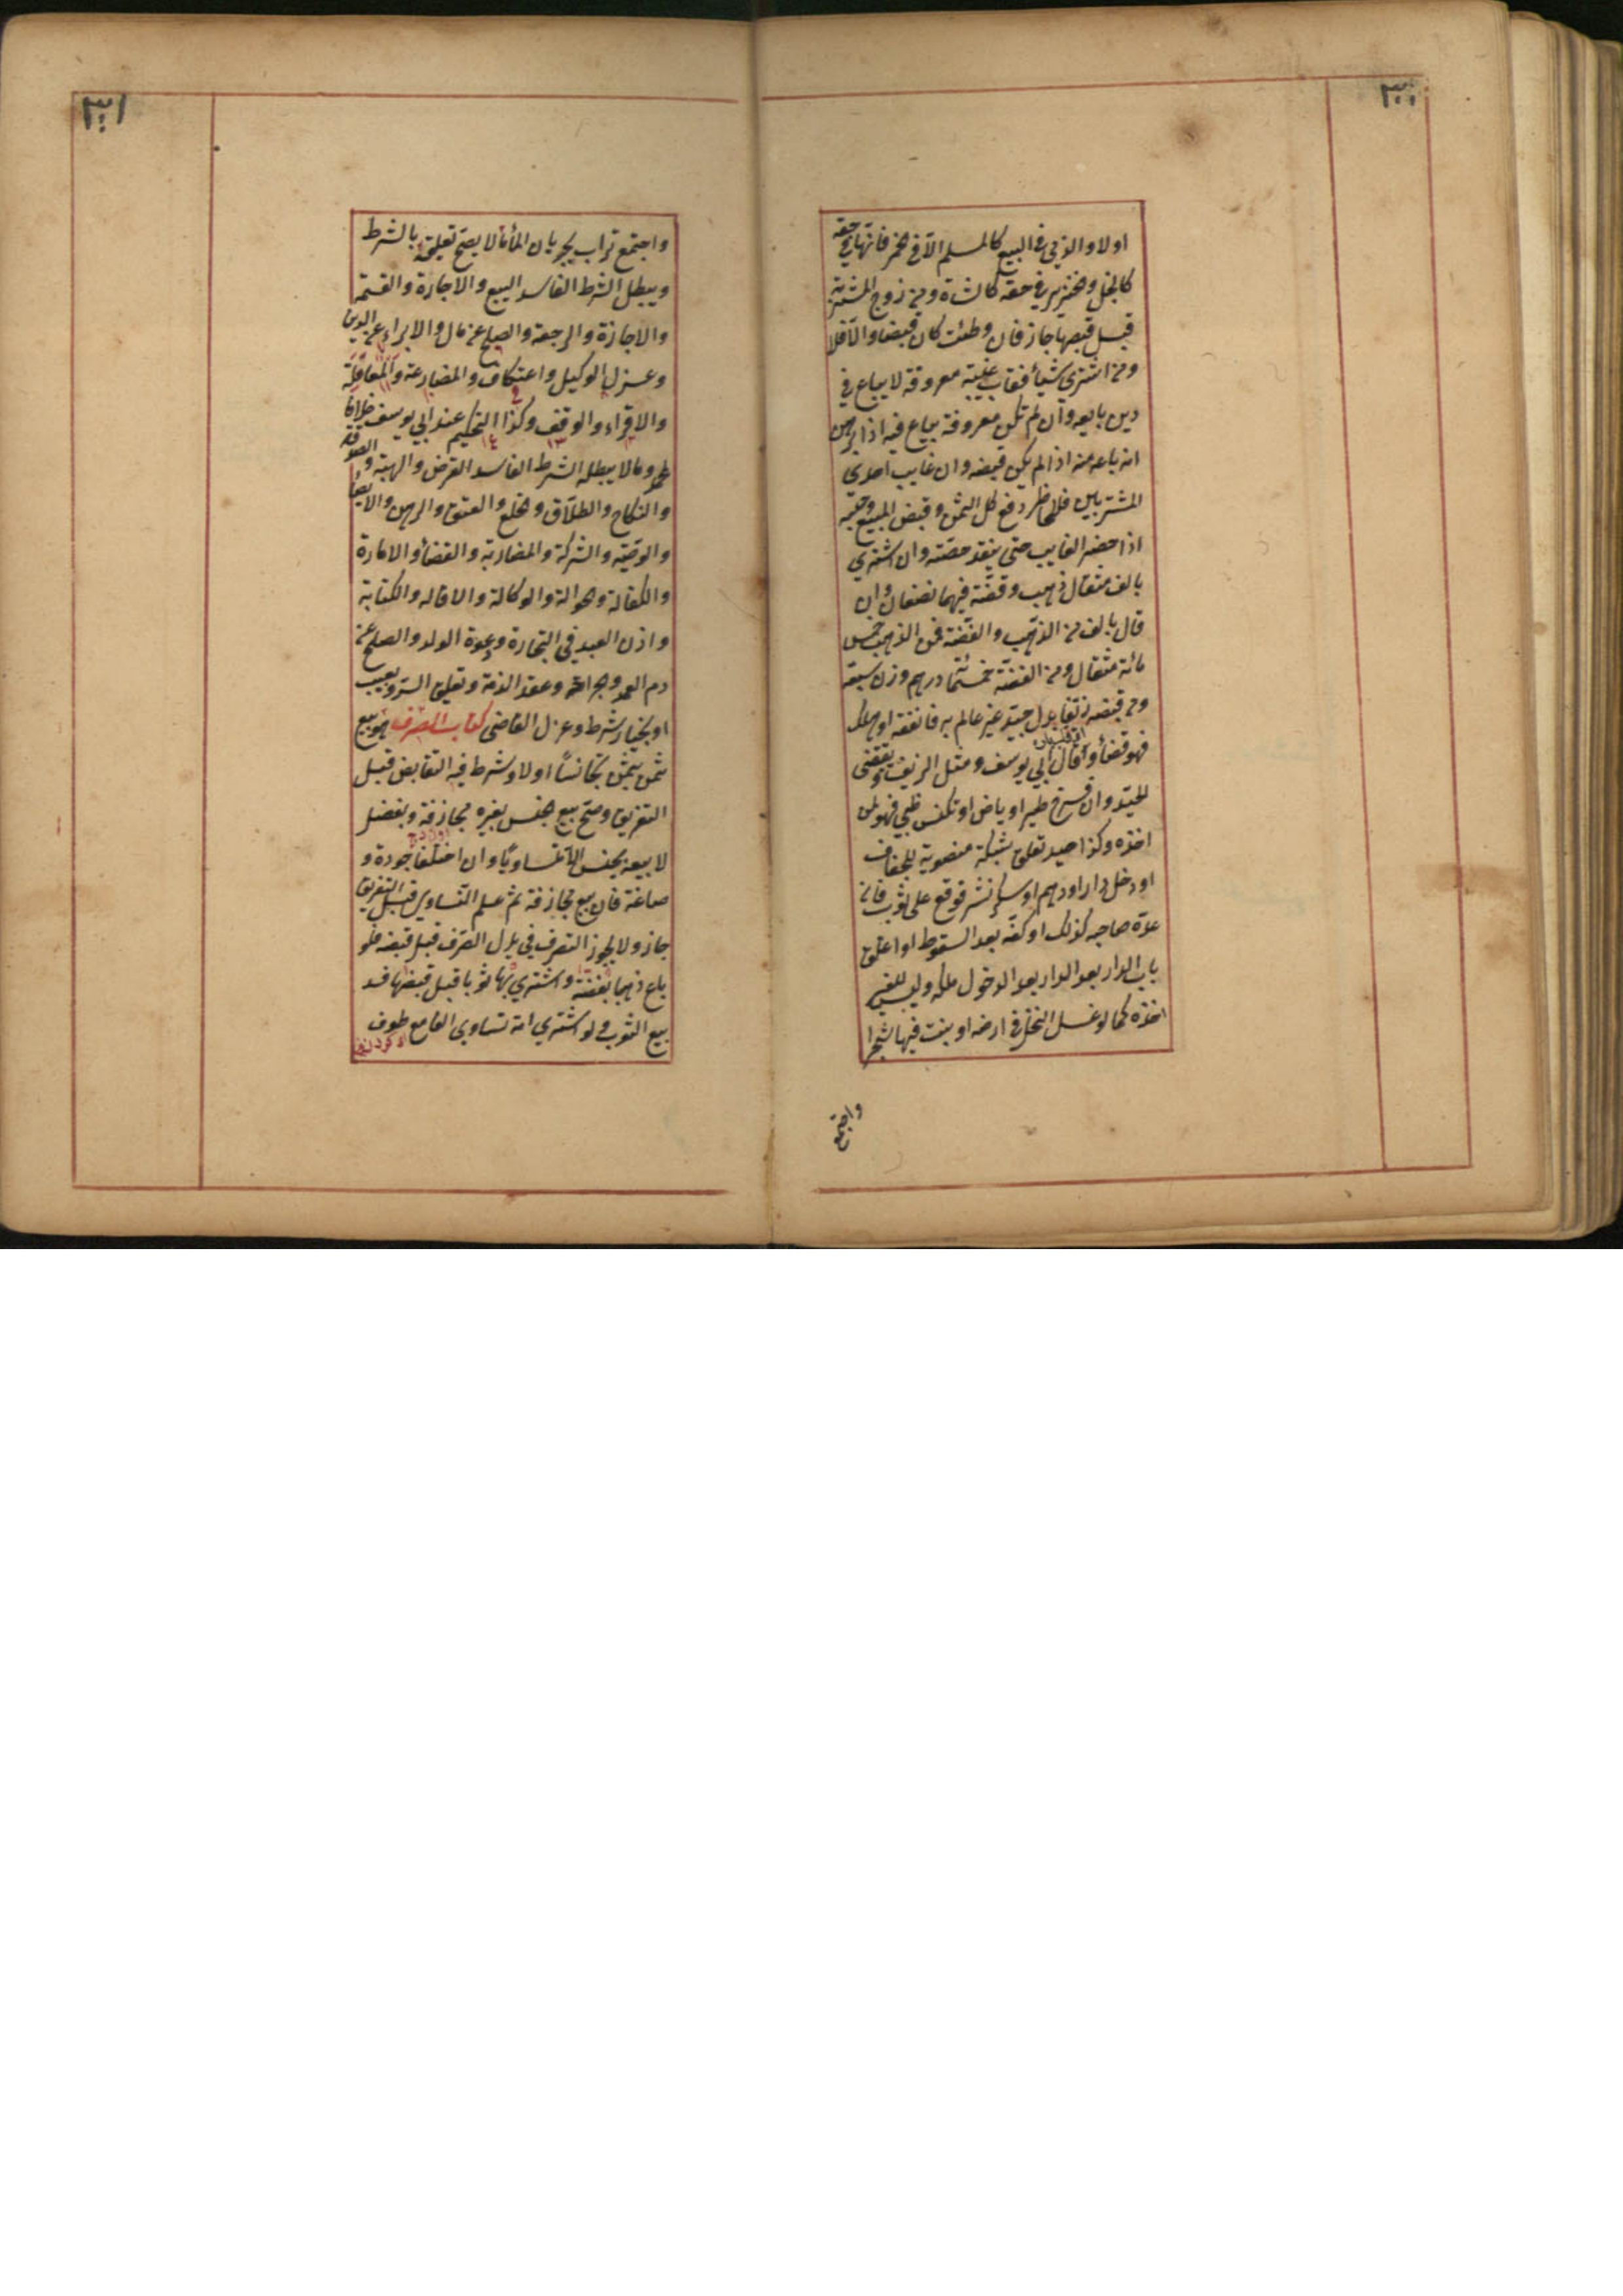 ٣٠٠
اولا والذمي في البيع كالمسلم الا في الخمر فانها في حقه
كالخل والخنزير في حقه كالشاة ومن زوج المشترية
قبل قبضها جاز فان وطئت كان قبضا والا فلا
ومن اشترى شيأ فغاب غيبة معروفة لا يباع في
دين بايعه وان لم تكن معروفة يباع فيه اذا برهن
انه باعه منه اذا لم يكن قبضه وان غايب احدى
المشتريين فللحاظر دفع كل الثمن وقبض المبيع وحبسه
اذا حضر الغايب حتى ينقد حصته وان اشترى
بالف مثقال ذهب وفضة فهما نصفان وان
قال بالف من الذهب والفضة فمن الذهب خمس
مائة مثقال ومن الفضة خمسمائة درهم وزن سبعة
ومن قبض زيفا بدل جيد غير عالم به فانفقه او هلك
فهو قضأ وقال ابي يوسف ومثل الزيف ويقتضى
الجيد وان فرخ طير او باض او تكنس ظبي فهو لمن
اخذه وكذا صيد تعلق بشبكة منصوبة للجفاف
او دخل دار او درهم او سكر نثر فوقع على ثوب فان
عده صاحبه كذلك او كفه بعد السقوط او اغلق
باب الدار بعد الدار بعد الدخول ملكه وليس للغير
اخذه كما لو عسل النحل في ارضه او نبت فيها شجرا
واجتمع
٣٠١
واجتمع تراب بجريان المأ ما لا يصح تعليقه بالشرط
ويبطل الشرط الفاسد البيع والاجارة والقسمة
والاجازة والرجعة والصلح عن مال والابراء عن الدين
وعزل الوكيل واعتكاف والمضارعة والمعاملة
والاقراء والوقف وكذا التحكيم عند ابي يوسف خلافا
لمحمد وما لا يبطله الشرط الفاسد القرض والهبة والصدقة
والنكاح والطلاق والخلع والعتق والرهن والايصأ
والوصية والشركة والمضاربة والقضأ والامارة
والكفالة والحوالة والوكالة والاقاله والكتابة
واذن العبد في التجارة ودعوة الولد والصلح عن
دم العمد والجراحة وعقد الذمة وتعليق الرد بعيب
او بخيار شرط وعزل القاضى كتاب الصرف هو بيع
ثمن بثمن تجانسا اولا وشرط فيه التقابض قبل
التفريق وصح بيع الجنس بغيره مجازفة وبفضل
لا بيعه بجنس الا تساويا وان اختلفا جودة و
صياغة فان بيع مجازفة ثم علم التساوي قبل التفريق
جاز ولا يجوز التصرف في بدل الصرف قبل قبضه فلو
باع ذهبا بفضة واشترى بها ثوبا قبل قبضها فسد
بيع الثوب ولو اشترى امة تساوى الفا مع طوف